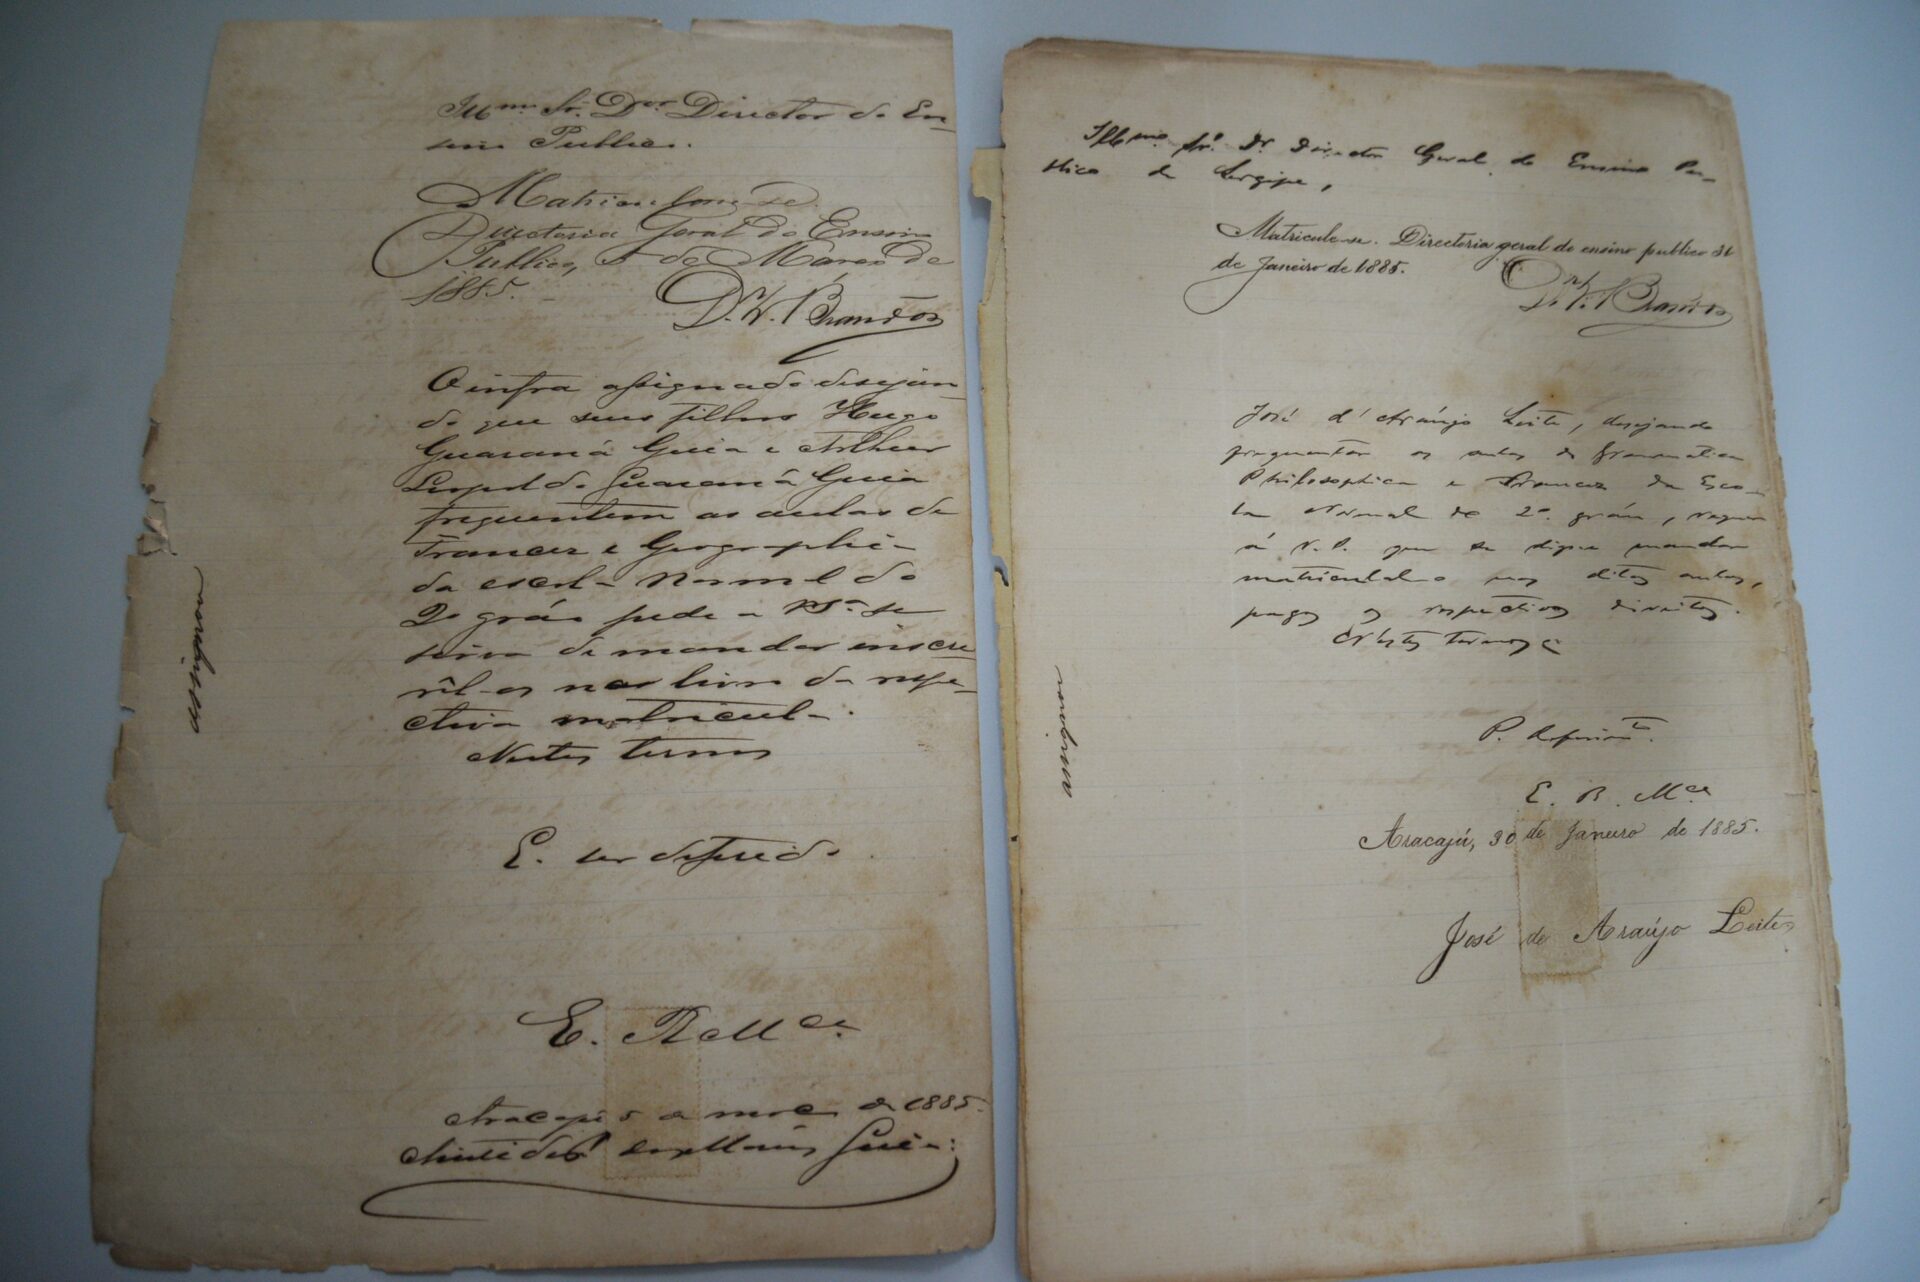 Illmo Sr. Dor Director do En-
sino Publico.
Matriculem-se.
Directoria Geral do Ensino
Publico, 5 de Março de
1885.
Brandão
O infra assignado desejan-
do que seus filhos Hugo
Guaraná Guia e Arthur
Leopoldo Guaraná Guia
frequentem as aulas de
Francez e Geographia
da escola normal do
2o gráo pede a VSa se
sirva de mandar inscre-
vêl-os nos livro da respe-
ctiva matricula.
Nestes termos
E. ser deferido.
E. R. Mce
Aracajú 5 de março de 1885.
Guia
assignou
Illmo. Sr. Dr. Director Geral do Ensino Pu-
blico de Sergipe,
Matricule-se. Directoria geral do ensino publico 31
de Janeiro de 1885.
Brandão
José d'Araújo Leite, desejando
frequentar as aulas de Grammatica
Philosophica e Francez da Esco-
la Normal de 2o. gráu, requer
á V.S. que se digne mandar
matriculal-o nas ditas aulas,
pagos os respectivos direitos.
Nestes termos
P. deferimto.
E. R. Mce
Aracajú, 30 de Janeiro de 1885.
José de Araújo Leite
assignou